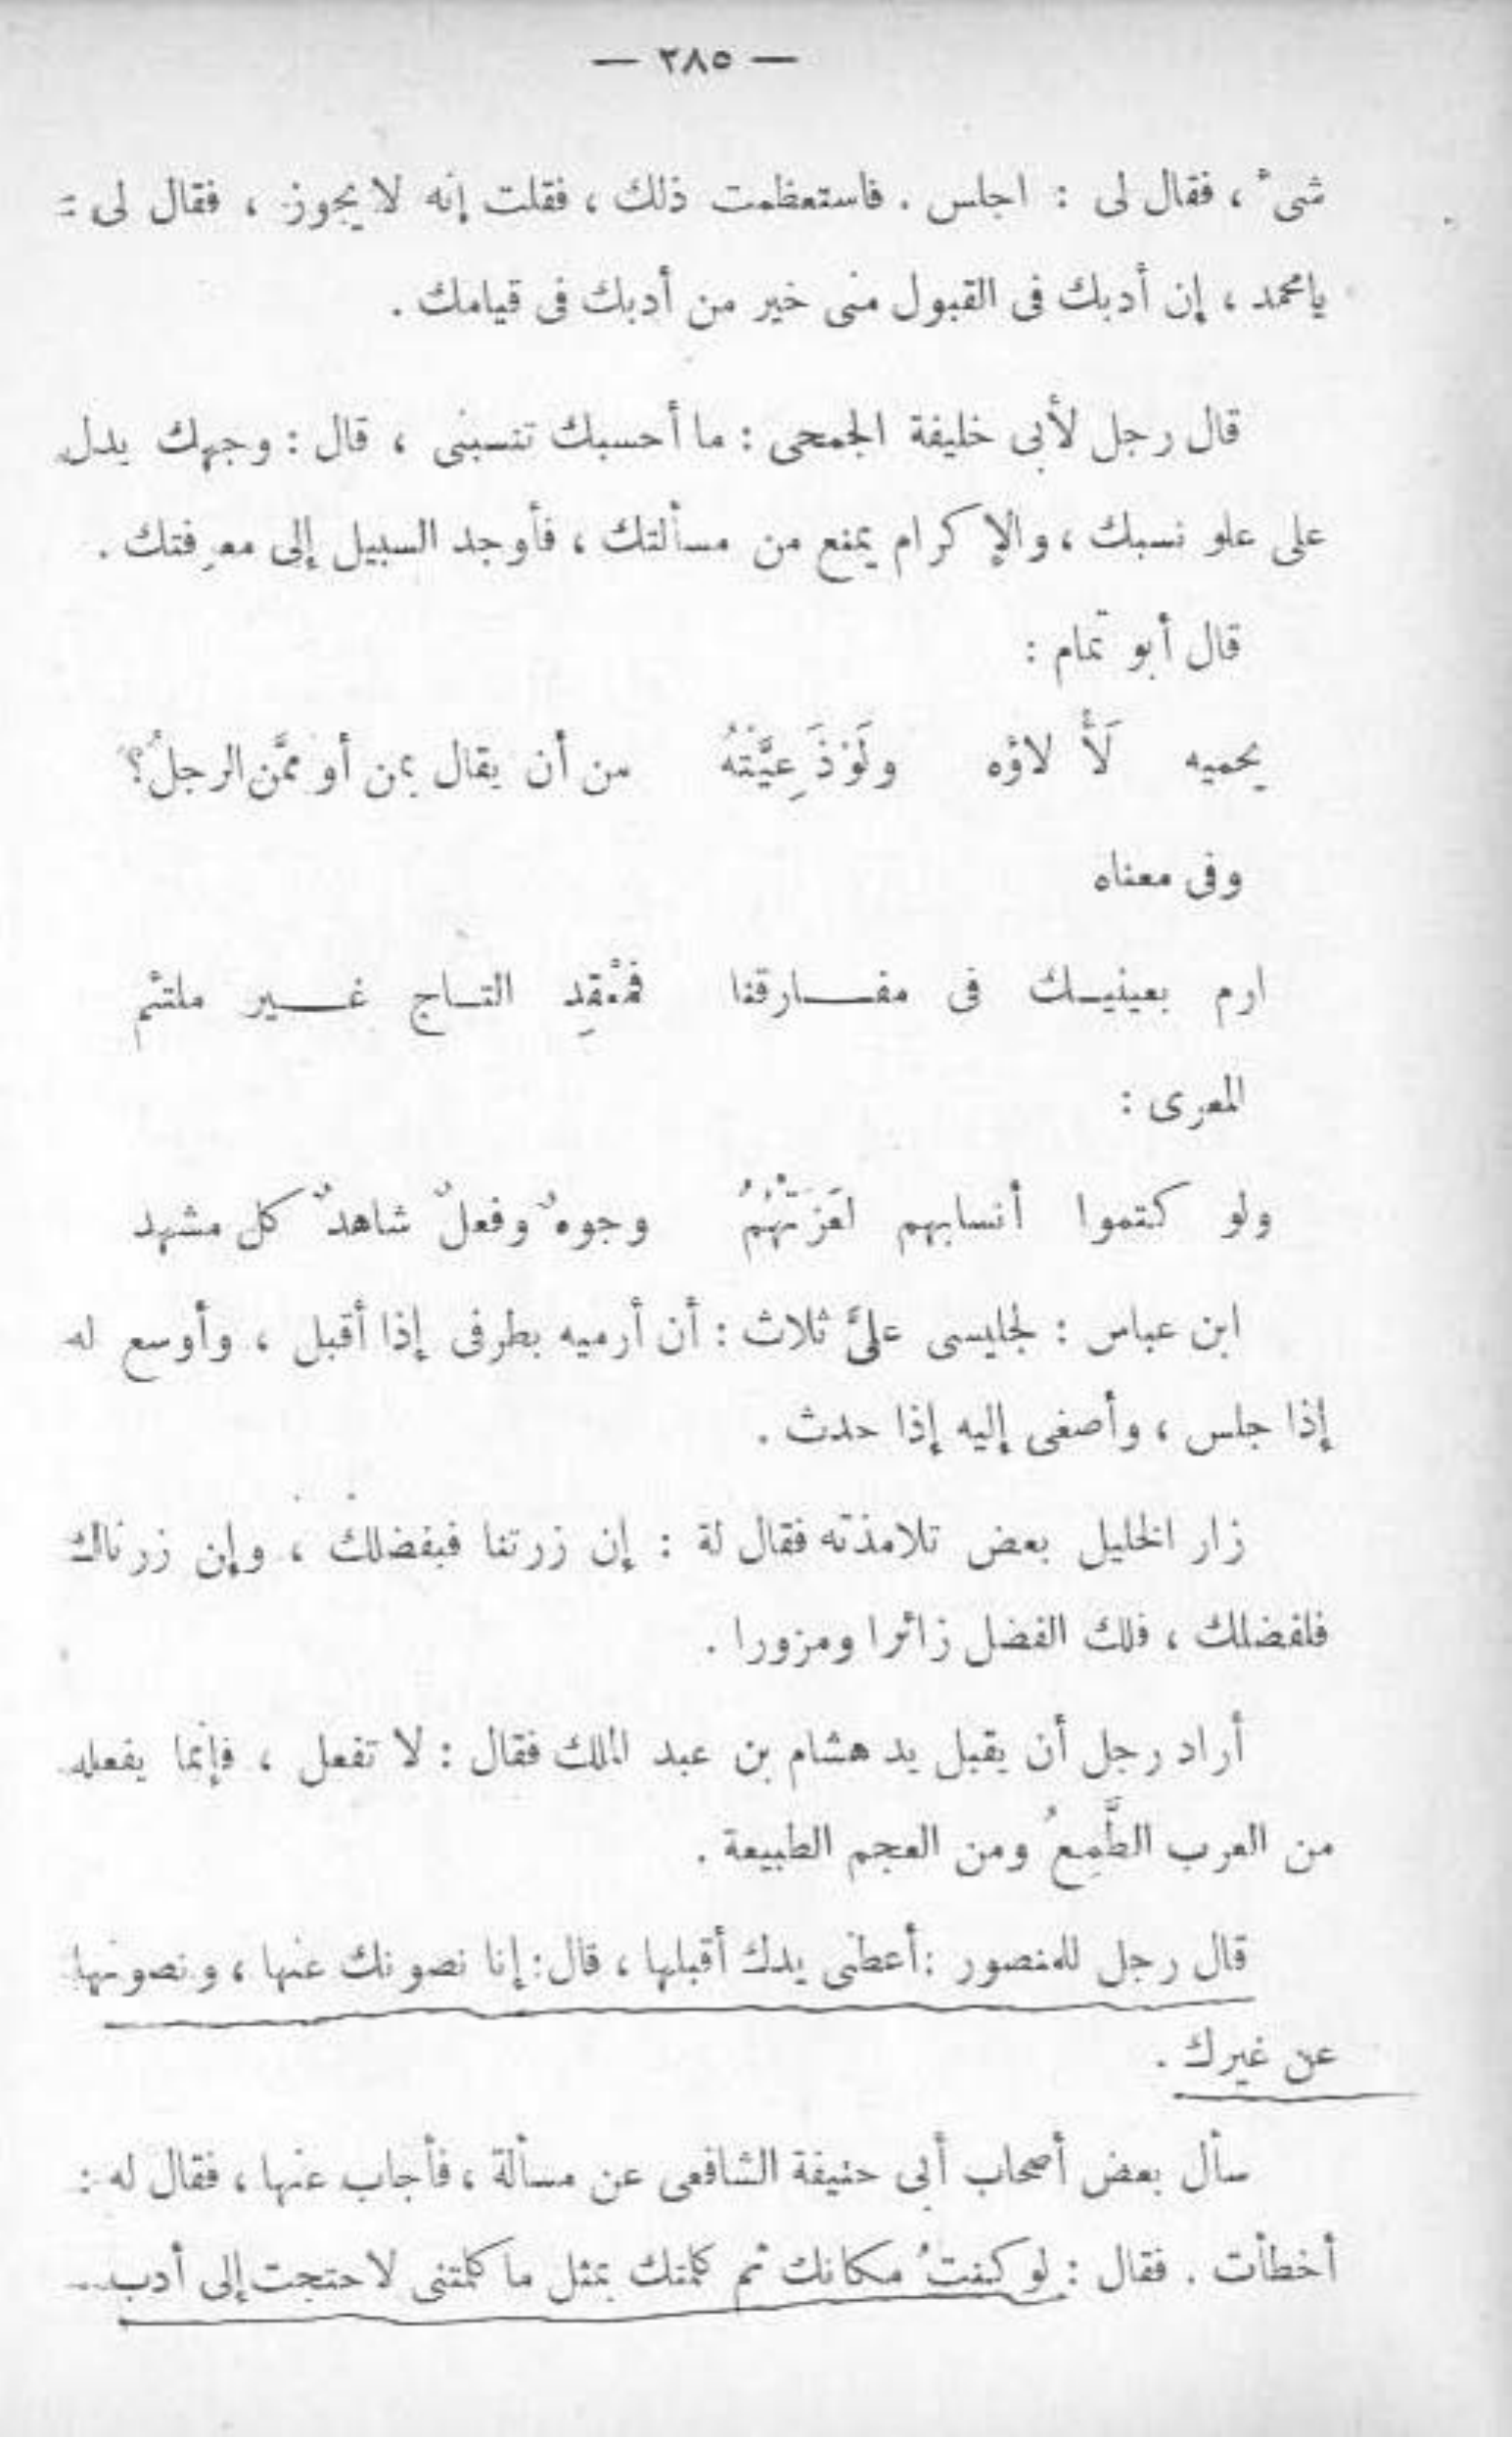 — ٢٨٥ —
شىء ، فقال لى : اجلس . فاستعظمت ذلك ، فقلت إنه لا يجوز ، فقال لى :
يا محمد ، إن أدبك فى القبول منى خير من أدبك فى قيامك .
قال رجل لأبى خليفة الجمحى : ما أحسبك تنسبنى ، قال : وجهك يدل
على علو نسبك ، والإكرام يمنع من مسألتك ، فأوجد السبيل إلى معرفتك .
قال أبو تمام :
يحميه لَأْلاؤه ولَوْذَعِيَّتُهُ من أن يقال بمن أو ممَّن الرجلُ؟
وفى معناه
ارم بعينيك فى مفارقنا فمَعْقِد التاج غير ملتئم
المعرى :
ولو كتموا أنسابهم لعَزَتْهُمُ وجوهٌ وفعلٌ شاهدٌ كل مشهد
ابن عباس : لجليسى علىَّ ثلاث : أن أرميه بطرفى إذا أقبل ، وأوسع له
إذا جلس ، وأصغى إليه إذا حدث .
زار الخليل بعض تلامذته فقال لة : إن زرتنا فبفضلك ، وإن زرناك
فلفضلك ، فلك الفضل زائرا ومزورا .
أراد رجل أن يقبل يد هشام بن عبد الملك فقال : لا تفعل ، فإنما يفعله
من العرب الطَّمِعُ ومن العجم الطبيعة .
قال رجل للمنصور : أعطنى يدك أقبلها ، قال : إنا نصونك عنها ، ونصونها
عن غيرك .
سأل بعض أصحاب أبى حنيفة الشافعى عن مسألة ، فأجاب عنها ، فقال له :
أخطأت . فقال : لو كنتُ مكانك ثم كلمتك بمثل ما كلمتنى لاحتجت إلى أدب .